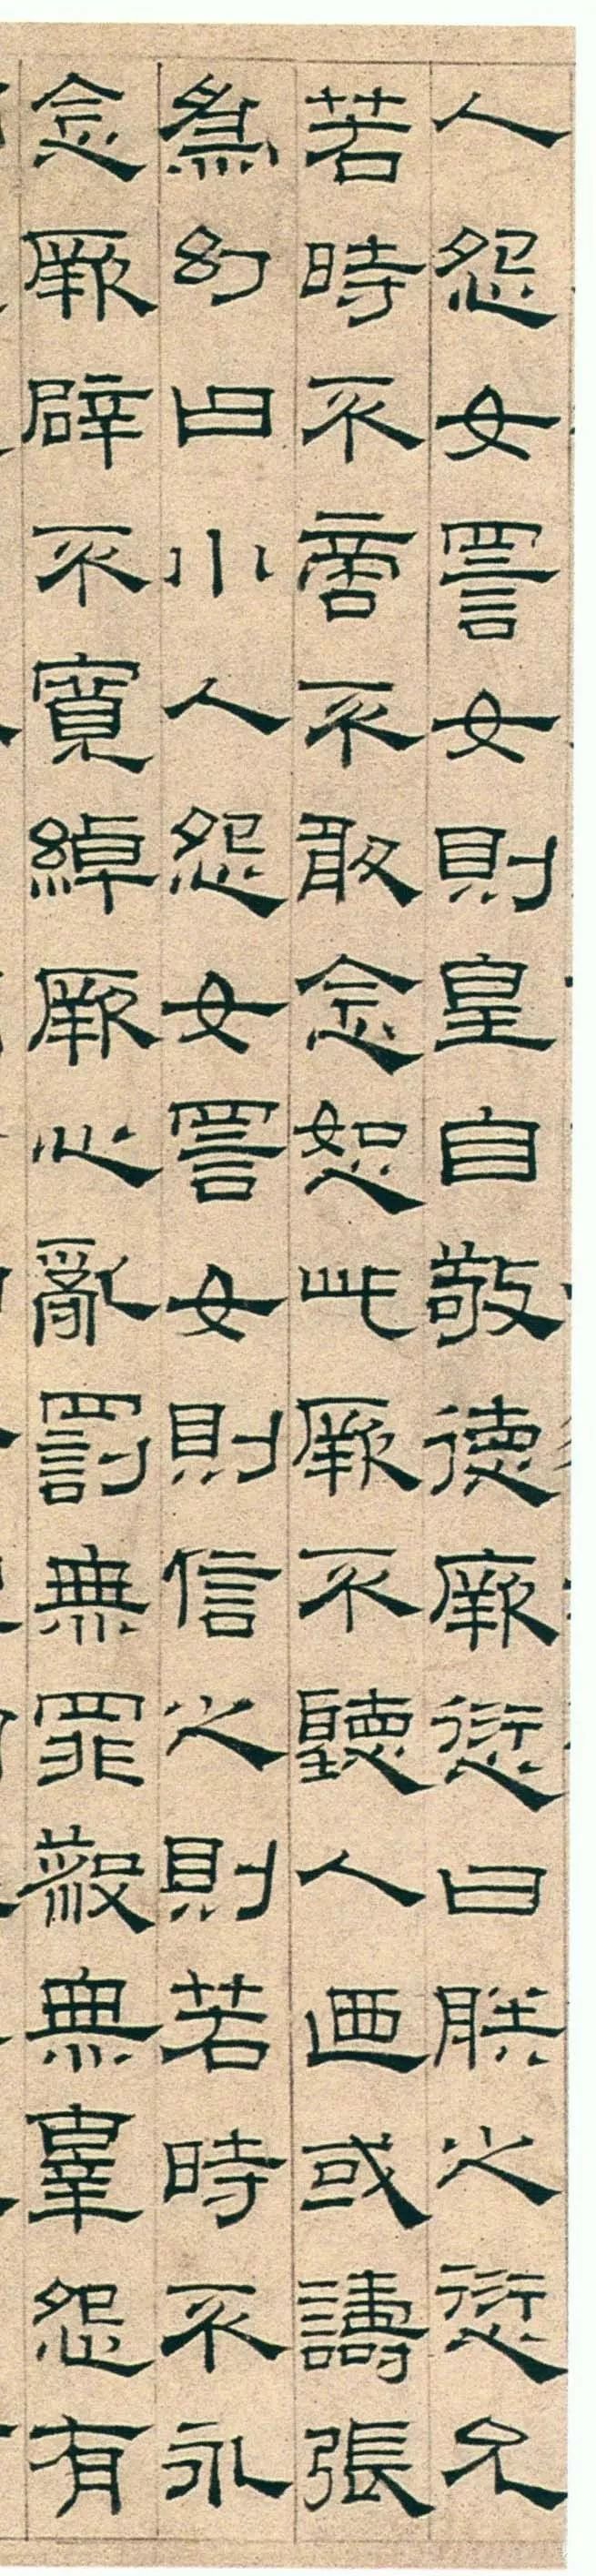 人怨女詈女則皇自敬德厥愆曰朕之愆允
若時不啻不敢念恕此厥不聽人迺或譸張
爲幻曰小人怨女詈女則信之則若時不永
念厥辟不寬綽厥心亂罰無罪殺無辜怨有